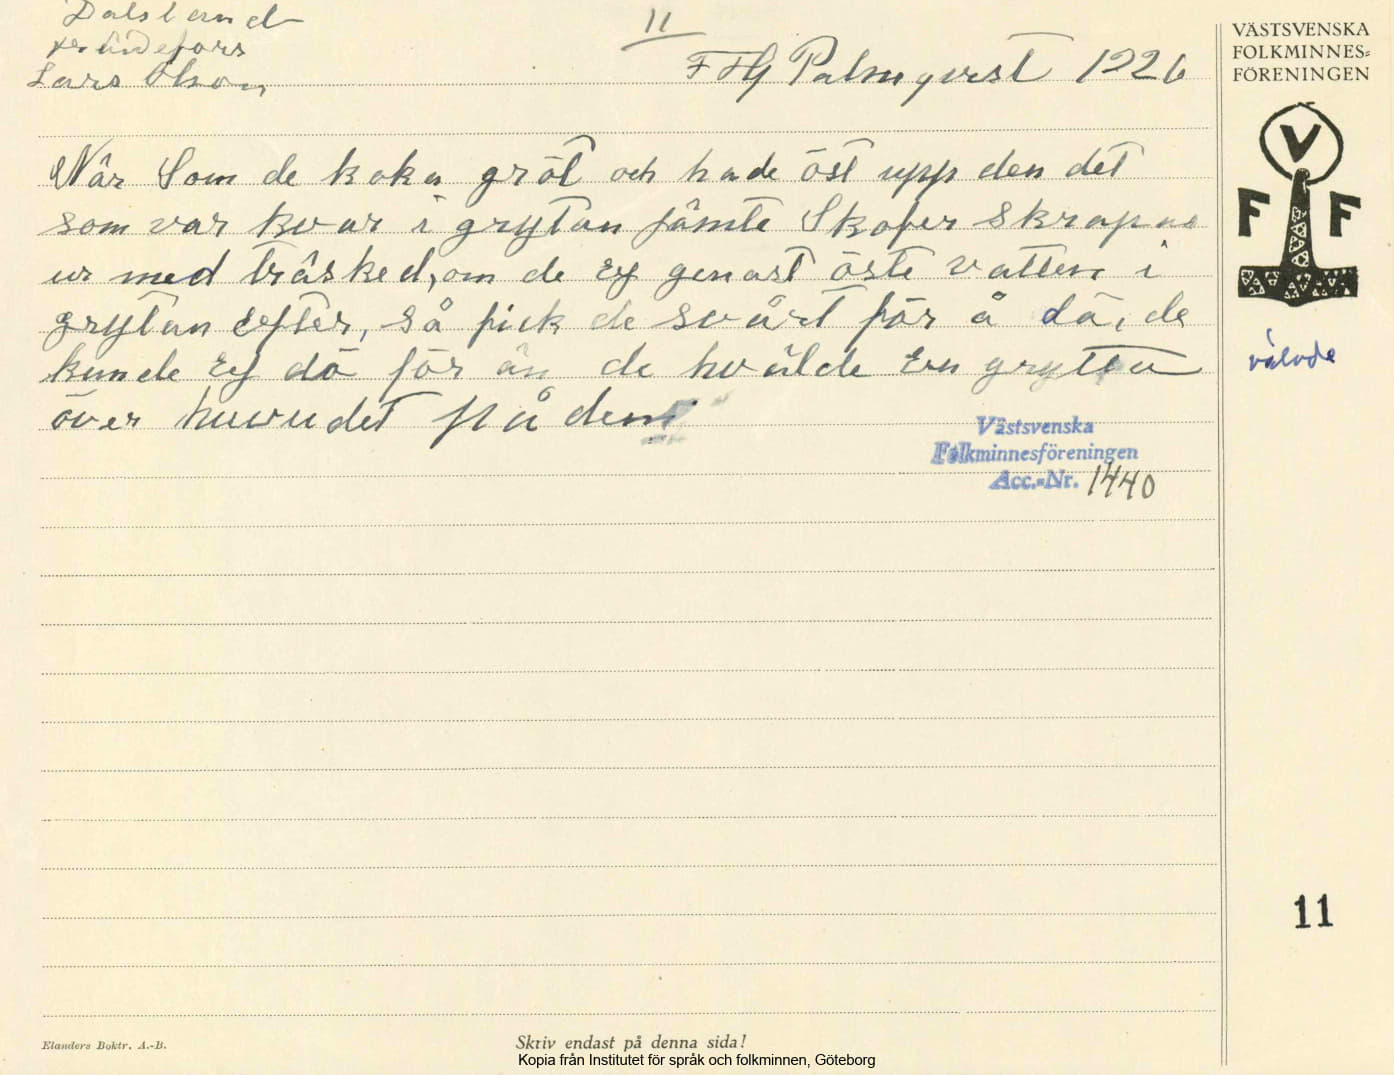 Dalsland
Lars Olson
11
F HG Palmqvist 1926
När Som de koka gröt och hade öst upp den det
som var kvar i grytan jämte Skofer skrapas
ur med träsked, om de Ej genast öste vatten i
grytan Efter, så fick de svårt för å dö, de
kunde Ej dö för än de hvälde En grytta
över huvudet på dem
Västsvenska
Folkminnesföreningen
Acc.-Nr. 1440
VÄSTSVENSKA
FOLKMINNES=
FÖRENINGEN
V
F F
välvde
11
Elanders Boktr. A.-B.
Skriv endast på denna sida!
Kopia från Institutet för språk och folkminnen, Göteborg